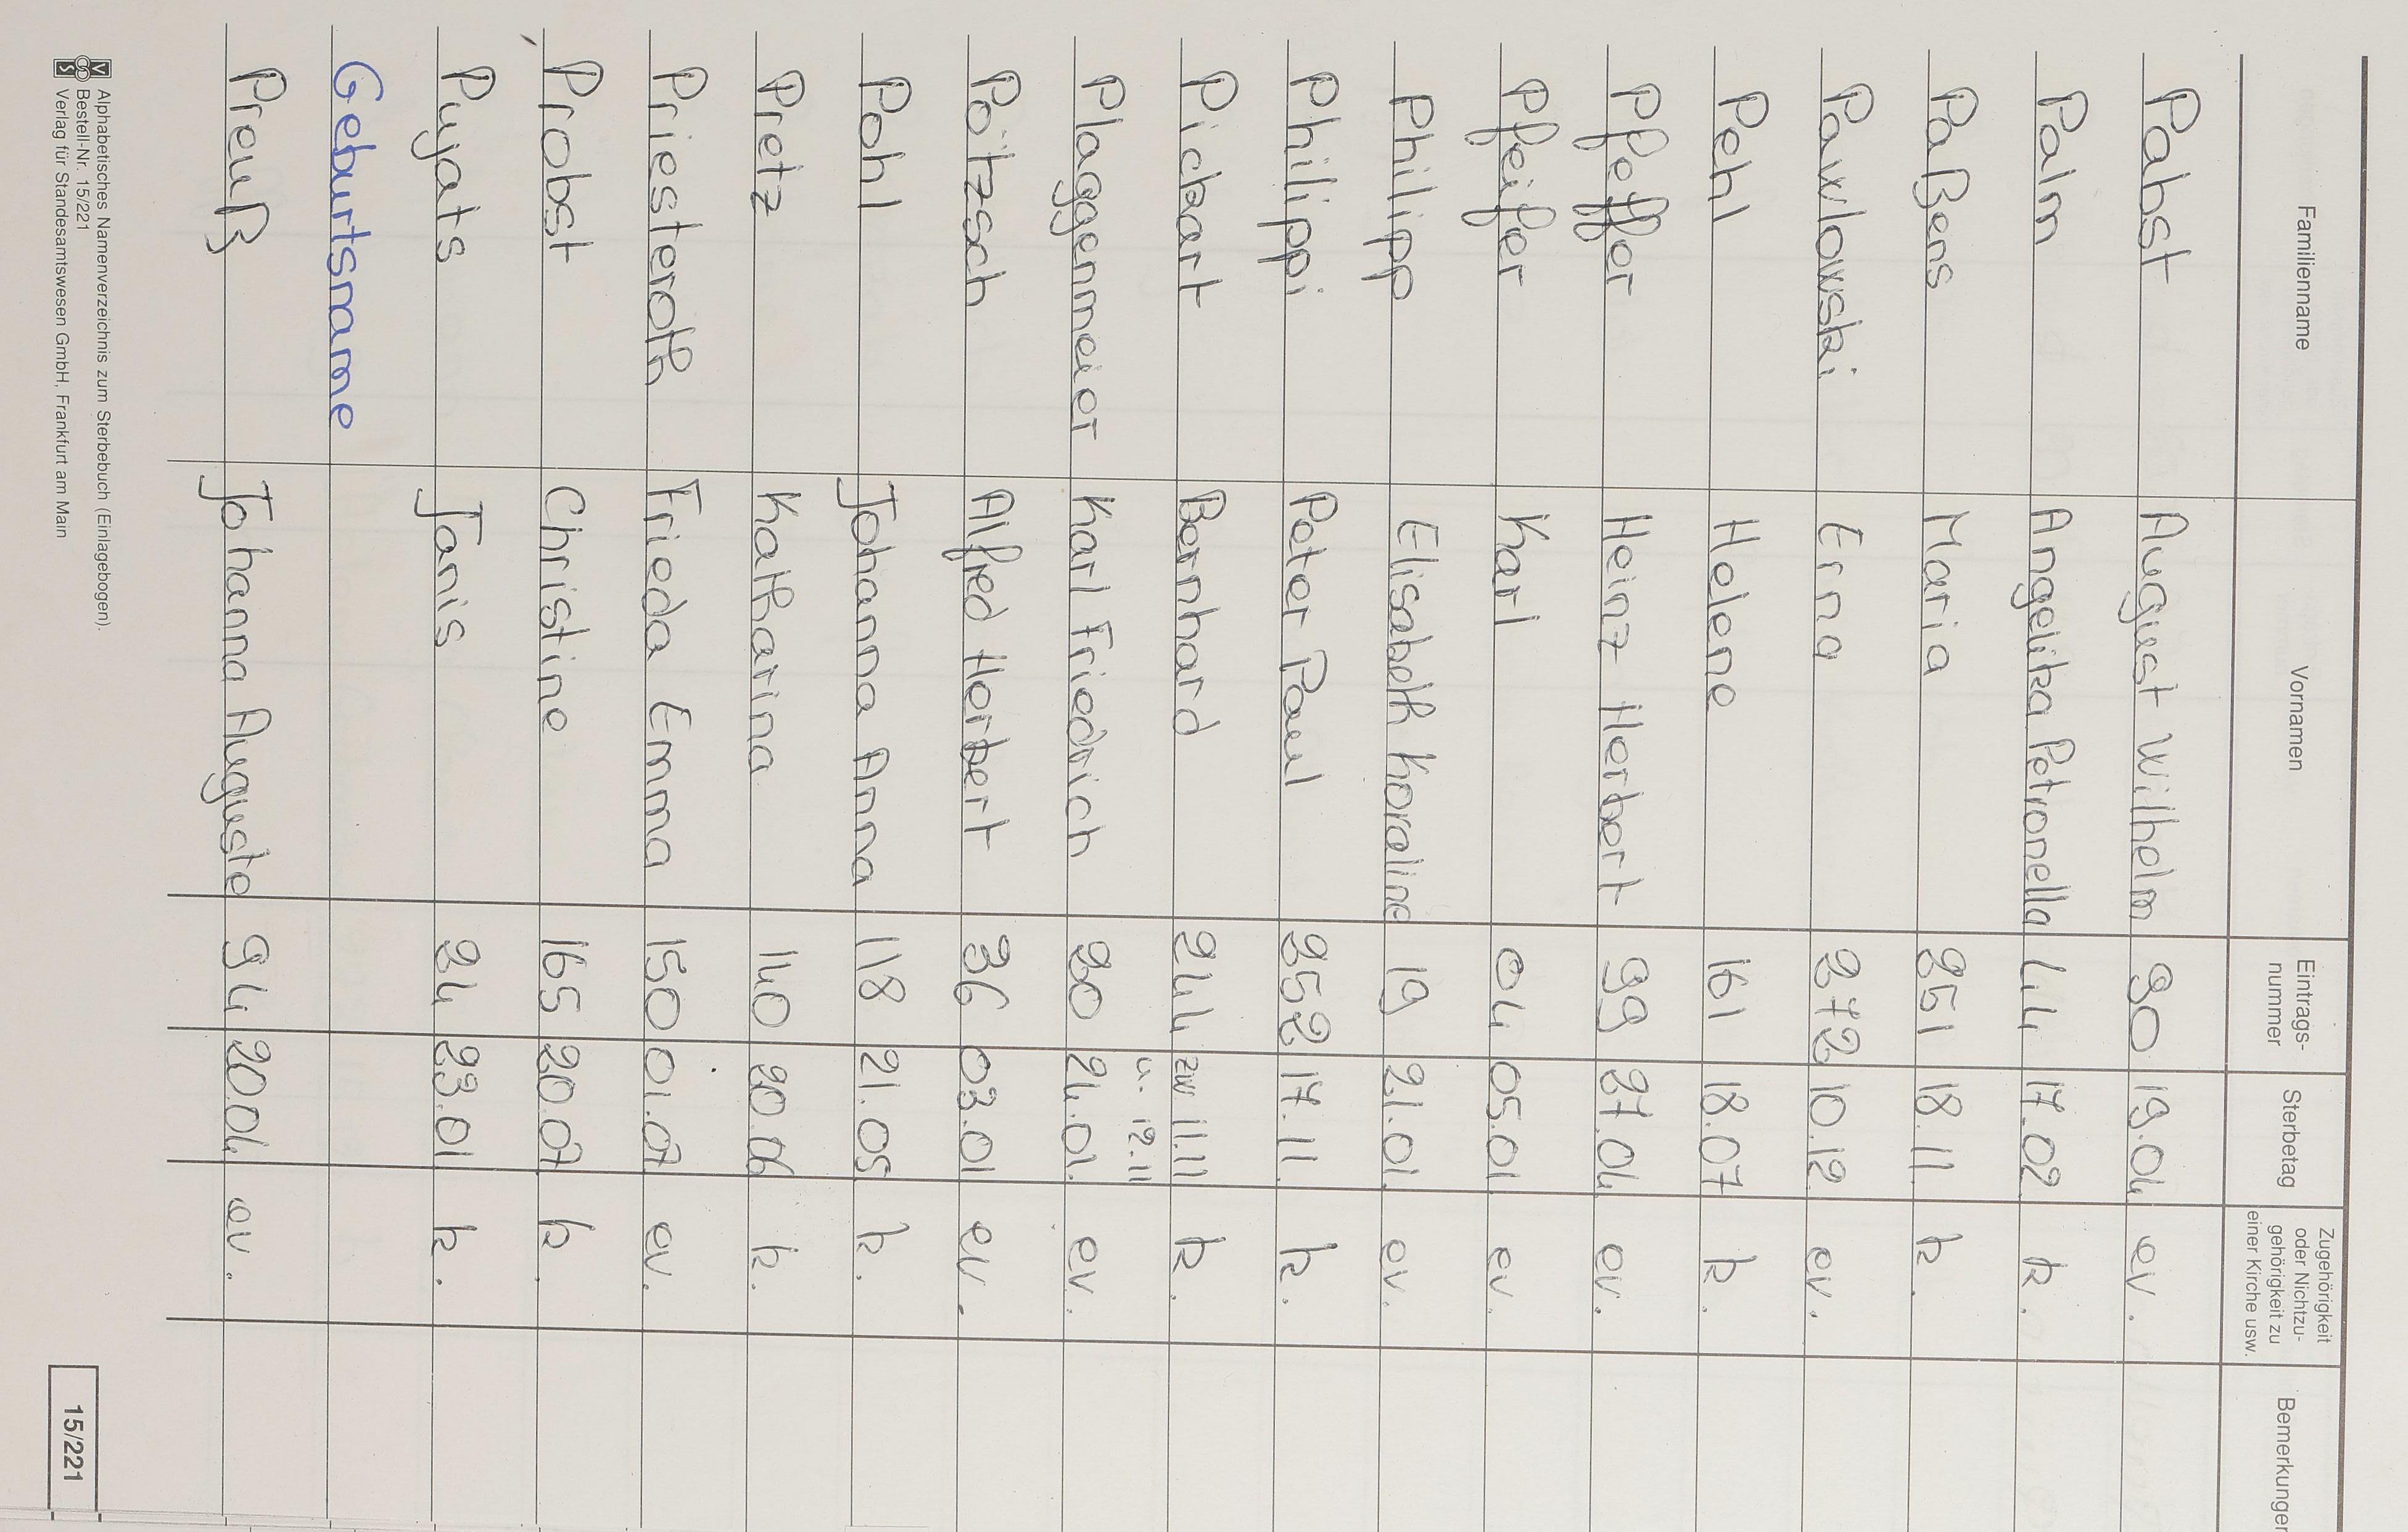 Familienname Vornamen Eintrags-nummer Sterbetag Zugehörigkeit oder Nichtzu-gehörigkeit zu einer Kirche usw. Bemerkungen
Pabst August Wilhelm 90 19.04 ev.
Palm Angelika Petronella 44 17.02 k.
Paßens Maria 251 18.11 k.
Pawlowski Erna 272 10.12 ev.
Pehl Helene 161 18.07 k.
Pfeffer Heinz Herbert 99 27.04 ev.
Pfeifer Karl 04 05.01 ev.
Philipp Elisabeth Koraline 19 21.01 ev.
Philippi Peter Paul 252 17.11 k.
u. 12.11
Pickart Bernhard 244 zw 11.11 k.
Plaggenmeier Karl Friedrich 20 24.01. ev.
Poitzsch Alfred Herbert 36 03.01 ev.
Pohl Johanna Anna 118 21.05 k.
Pretz Katharina 140 20.06 k.
Priesteroth Frieda Emma 150 01.07 ev.
Probst Christine 165 20.07 k.
Pujats Janis 24 23.01 k.
Geburtsname
Preuß Johanna Auguste 94 20.04 ev.
Alphabetisches Namenverzeichnis zum Sterbebuch (Einlagebogen).
Bestell-Nr. 15/221
Verlag für Standesamtswesen GmbH, Frankfurt am Main
15/221